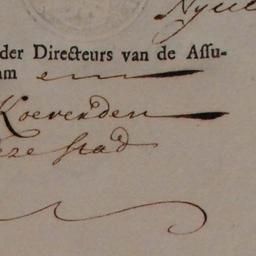 Nyul
der Directeurs van de Aſſu-
am en
Koeverden
eze stad